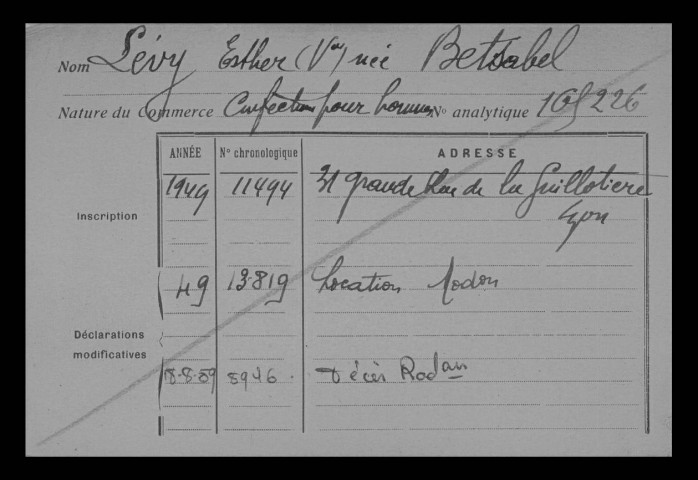 Nom Lévy Esther (Vve) née Betsabel
Nature du Commerce Confection pour hommes No analytique 165226
ANNÉE No chronologique ADRESSE
Inscription 1949 11494 31 grande Rue de la Guillotiere
Lyon
49 13819 Location Rodon
Déclarations
modificatives
18.8.59 8946 Décès Rodan